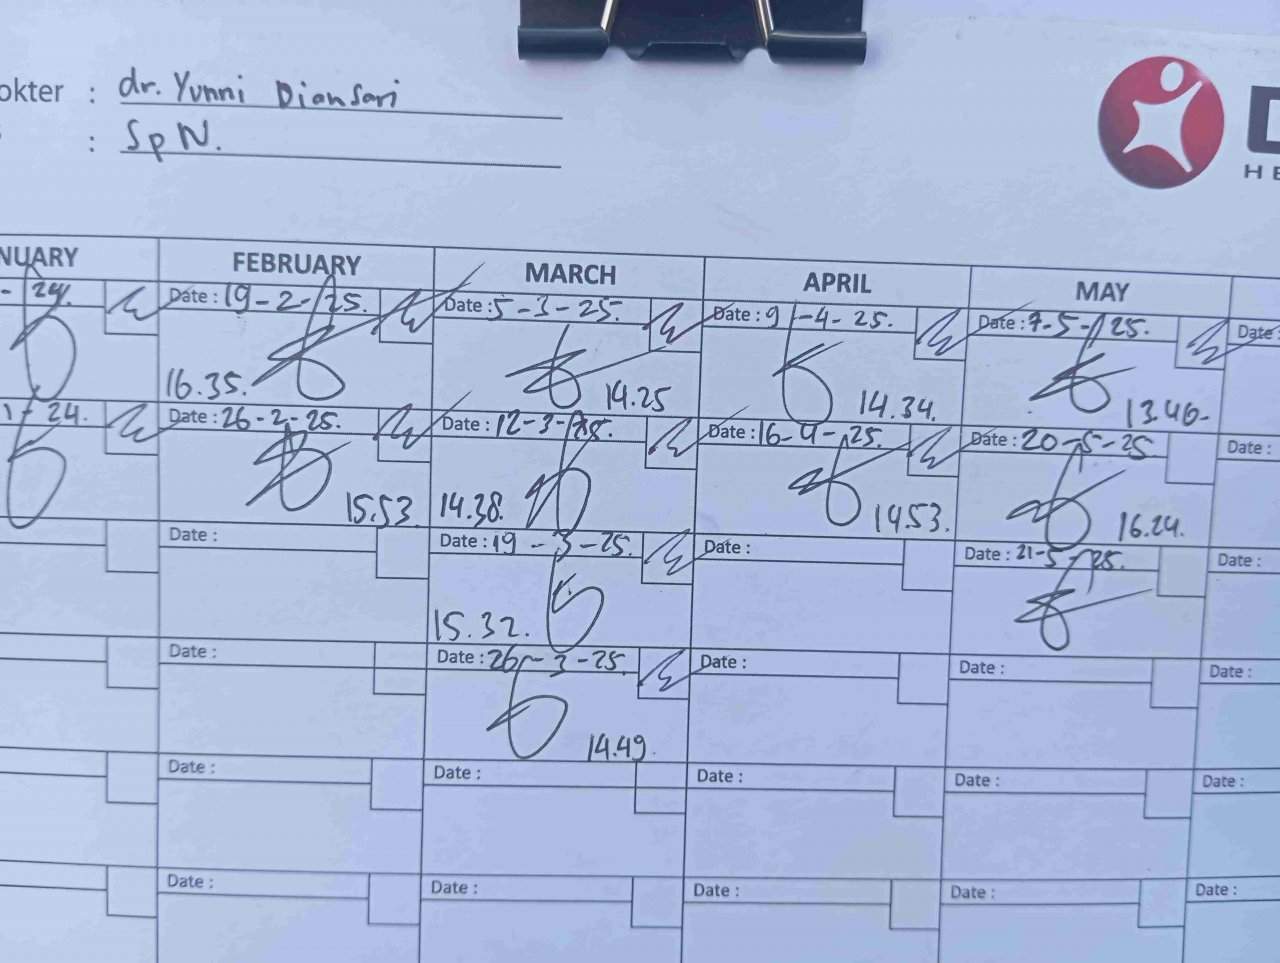 okter : dr. Yunni Diansari
: Sp N.
D
HE
NUARY FEBRUARY MARCH APRIL MAY
- 24. Date : 19-2-25. Date : 5-3-25. Date : 9-4-25. Date : 7-5-25. Date :
16.35. 14.25 14.34. 13.46-
1-24. Date : 26-2-25. Date : 12-3-25. Date : 16-4-25. Date : 20-5-25 Date :
15.53. 14.38. 14.53. 16.24.
Date : Date : 19-3-25. Date : Date : 21-5-25. Date :
15.32.
Date : Date : 26-3-25. Date : Date : Date :
14.49.
Date : Date : Date : Date : Date :
Date : Date : Date : Date : Date :